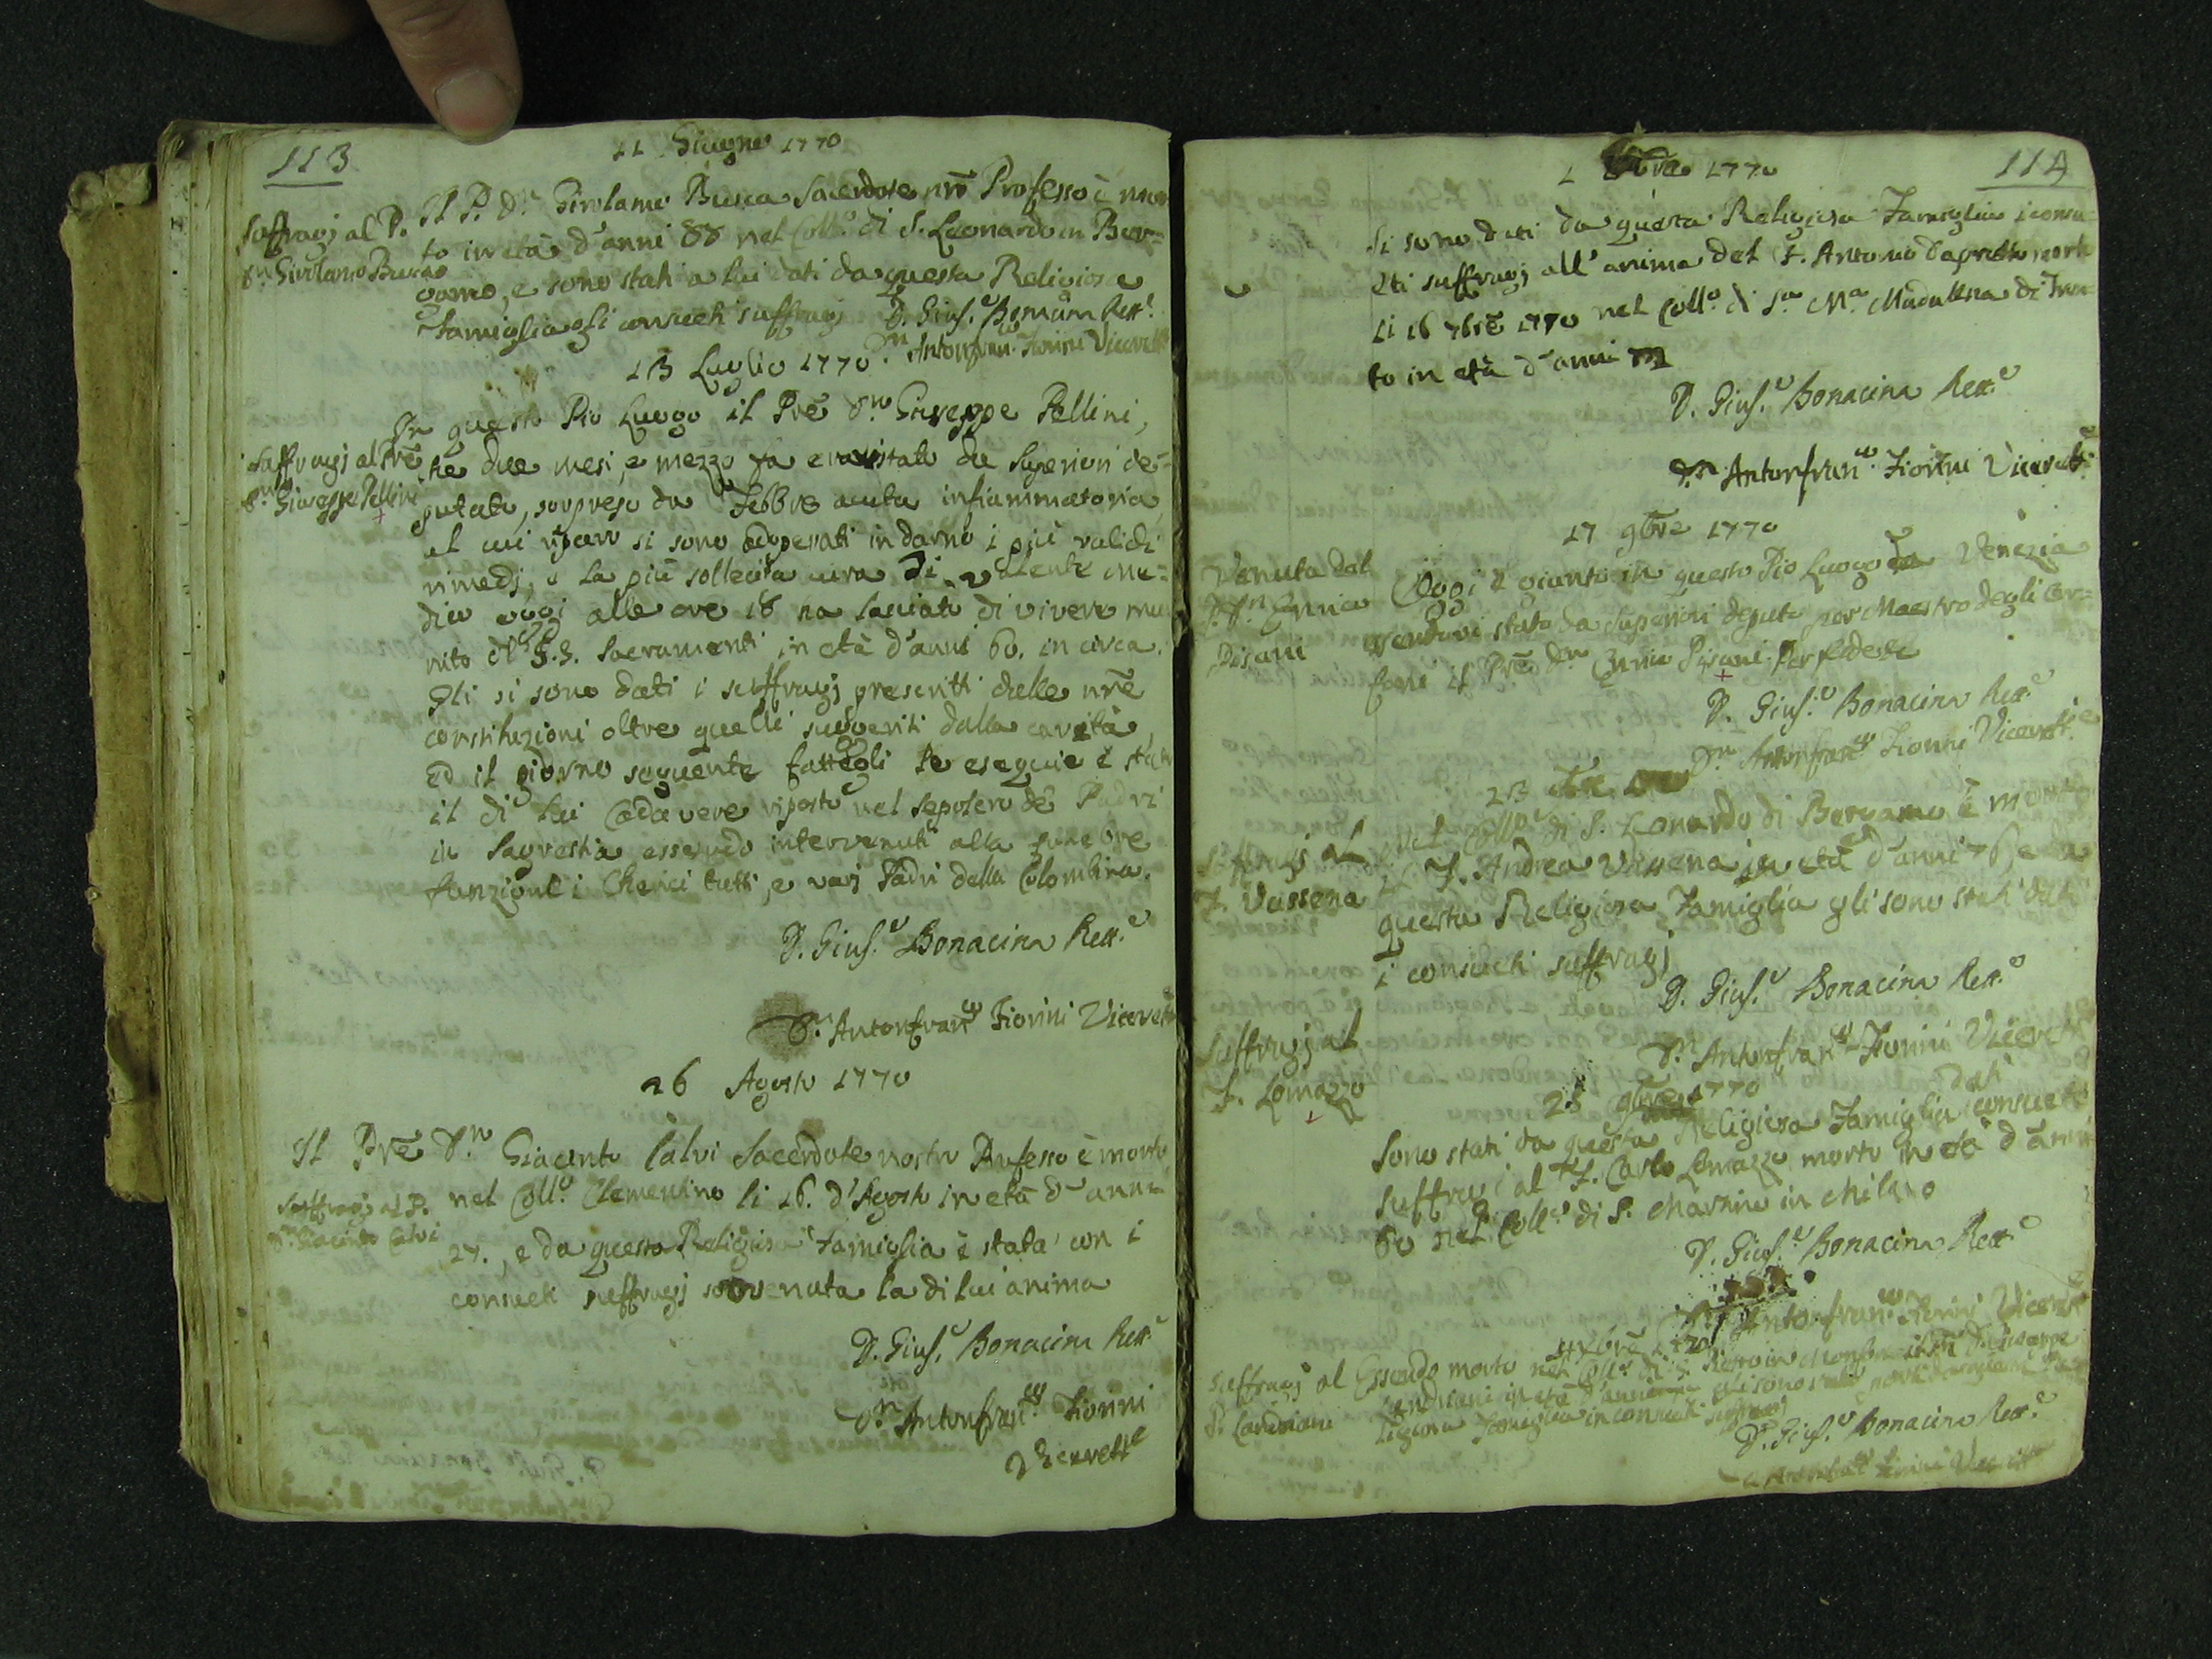 113
11 Giugno 1770
Suffragj al P.
Dn Girolamo Busca
Il P. Dn Girolamo Busca Sacerdote nrõ Professo è mor
to in età d'anni 88 nel Collo di S. Leonardo in Ber=
gamo, e sono stati a lui dati da questa Religiosa
Famiglia gli consueti suffragj D. Giuse Bonacina Rette
Dn Antonfranco Fiorini Vicerette
13 Luglio 1770
Suffragj al Prẽ
Dn Giuseppe Pellini
In questo Pio Luogo il Prẽ Dn Giuseppe Pellini,
che due mesi, e mezzo fa era stato da Superiori de=
putato, sorpreso da Febbre acuta infiammatoria,
al cui riparo si sono adoperati indarno i più validi
rimedj, e la più sollecita cura di valente me=
dico oggi alle ore 18 ha lasciato di vivere mu
nito de' S.S. Sacramenti in età d'anni 60. in circa.
Gli si sono dati i suffragj prescritti dalle nrẽ
constituzioni oltre quelli suggeriti dalla carità,
ed il giorno seguente fattegli le esequie è stato
il di lui Cadavere riposto nel sepolcro de' Padri
in Sagrestia essendo intervenuti alla funebre
funzione i Cherici tutti, e varj Padri della Colombina.
D. Giuse Bonacina Rette
Dn Antonfranco Fiorini Vicerette
26 Agosto 1770
Suffragj al P.
Dn Giacinto Calvi
Il Prẽ Dn Giacinto Calvi Sacerdote nostro Professo è morto
nel Collo Clementino li 16. d'Agosto in età d'anni
27., e da questa Religiosa Famiglia è stata con i
consueti suffragj sovvenuta la di lui anima
D. Giuse Bonacina Rette
Dn Antonfranco Fiorini
Vicerette
114
1 1770
Si sono dati da questa Religiosa Famiglia i consu=
eti suffragj all'anima del F. Antonio morto
li 16 7brẽ 1770 nel Collo di Sa Ma Madalena di
to in età d'anni
D. Giuse Bonacina Rette
Dn Antonfranco Fiorini Vicerette
17 9brẽ 1770
Venuta del
P. Dn Ennio
Pisani
Oggi è giunto in questo Pio Luogo da Venezia
essendovi stato da Superiori deputato per Maestro degli Or=
fani il Prẽ Dn Ennio Pisani. Per fede
D. Giuse Bonacina Rette
Dn Antonfranco Fiorini Vicerette
23
Suffragj al
F. Vassena
Nel Collo di S. Leonardo di Bergamo è morto
il F. Andrea Vassena in età d'anni 76 e da
questa Religiosa Famiglia gli sono stati dati
i consueti suffragj
D. Giuse Bonacina Rette
Dn Antonfranco Fiorini Vicerette
Suffragj al
F. Lomazzo
25 9brẽ 1770
dati
Sono stati da questa Religiosa Famiglia i consueti
suffragi al F. Carlo Lomazzo morto in età d'anni
60 nel Collo di S. Martino in Milano
D. Giuse Bonacina Rette
Dn Antonfranco Fiorini Vicerette
Xbrẽ 1770
Suffragj al
P. Landriani
Essendo morto nel Collo di S. in il Prẽ D. Giuseppe
Landriani in età d'anni gli sono stati
ligiosa Famiglia i consueti suffragj
D. Giuse Bonacina Rette
Antonfranco Fiorini Vicerette